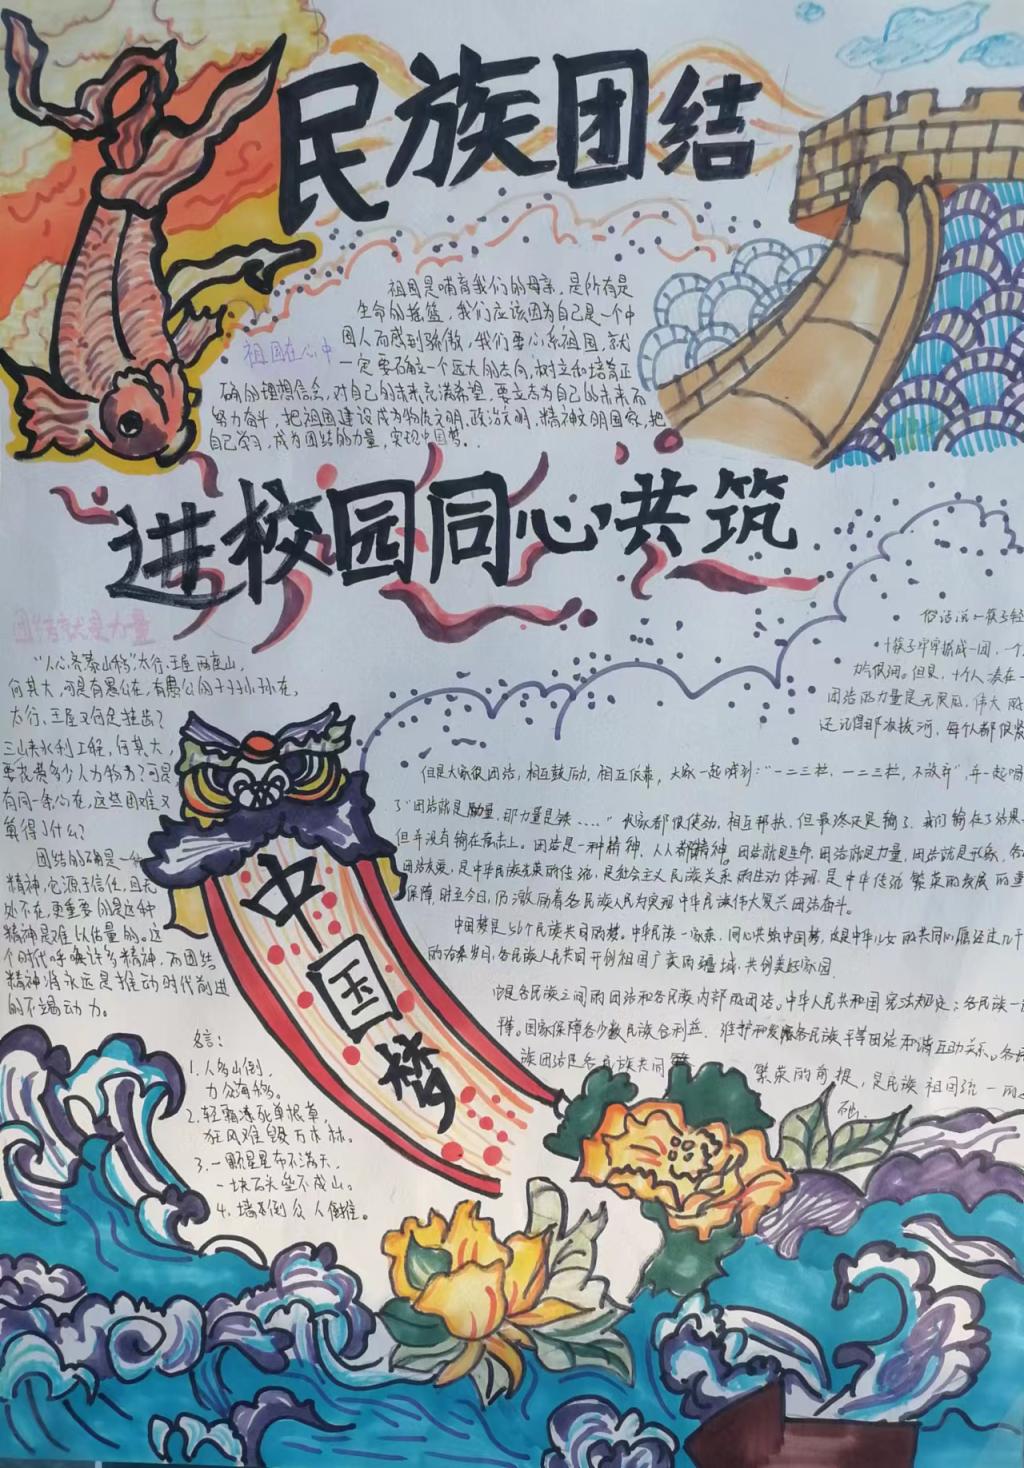 民族团结
祖国在心中
祖国是哺育我们的母亲,是所有是
生命的摇篮,我们应该因为自己是一个中
国人而感到骄傲,我们要心系祖国,就
一定要确立一个远大的志向,树立和培育正
确的理想信念,对自己的未来充满希望,要立志为自己的未来而
努力奋斗,把祖国建设成为物质文明,政治文明,精神文明国家,把
自己学习,成为团结的力量,实现中国梦。
进校园同心共筑
团结就是力量
"人心齐泰山移"太行、王屋两座山,
何其大,可是有愚公在,有愚公的子子小孙在,
太行、王屋又何足挂齿?
三山来水利工程,何其大,
要花费多少人力物力?可是
有同一条心在,这些困难又
算得了什么?
团结的确是一种
精神,它源于信任,且无
处不在,更重要的是这种
精神是难以估量的。这
个时代呼唤许多精神,而团结
精神将永远是推动时代前进
的不竭动力。
名言:
1.人多山倒,
力众海移。
2.轻霜冻死单根草,
狂风难毁万木林。
3.一颗星星布不满天,
一块石头垒不成山。
4.墙倒众人推。
中国梦
俗话说:一筷子轻
十筷子牢牢抱成一团,一个
力气很润。但是,十个人凑在一
团结的力量是无穷的,伟大
还记得那次拔河,每个人都很紧
但是大家很团结,相互鼓励,相互依靠,大家一起喊到:"一二三拦,一二三拦,不放弃",并一起唱
了"团结就是力量,那力量是铁....."大家都很使劲,相互帮扶,但最终还是输了,我们输在了结果
但并没有输在拳击上。团结是一种精神,人人都精神。团结就是生命,团结就是力量,团结就是形象,各
团结友爱,是中华民族光荣的传统,是社会主义民族关系的生动体现,是中华传统繁荣的发展的重
保障,时至今日,仍激励着各民族人民为实现中华民族伟大复兴团结奋斗。
中国梦是56个民族共同的梦。中华民族一家亲,同心共筑中国梦,这是中华儿女的共同心愿经过几千
的沧桑岁月,各民族人民共同开创祖国广袤的疆域,共创美好家园
是各民族之间的团结和各民族内部的团结。中华人民共和国宪法规定:各民族一
国家保障各少数民族合利益,维护和发展各民族平等团结和谐互助关系。各
族团结是各民族共同繁荣的前提,是民族祖国统一的
础.